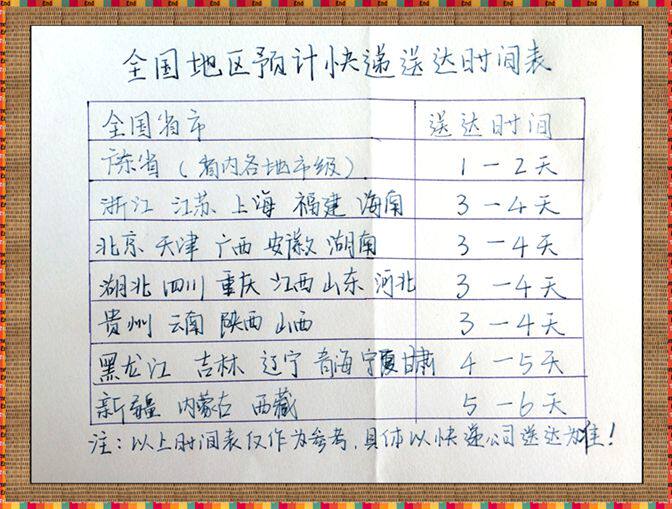 全国地区预计快递送达时间表
全国省市 送达时间
广东省（省内各地市级） 1－2天
浙江 江苏 上海 福建 海南 3－4天
北京 天津 广西 安徽 湖南 3－4天
湖北 四川 重庆 江西 山东 河北 3－4天
贵州 云南 陕西 山西 3－4天
黑龙江 吉林 辽宁 青海 宁夏 甘肃 4－5天
新疆 内蒙古 西藏 5－6天
注：以上时间表仅作为参考，具体以快递公司送达为准！